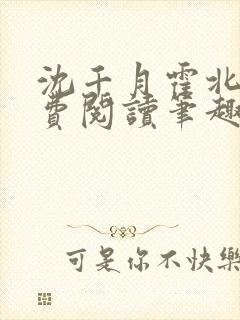 沈千月霍北
費閱讀筆趣
可是你不快樂